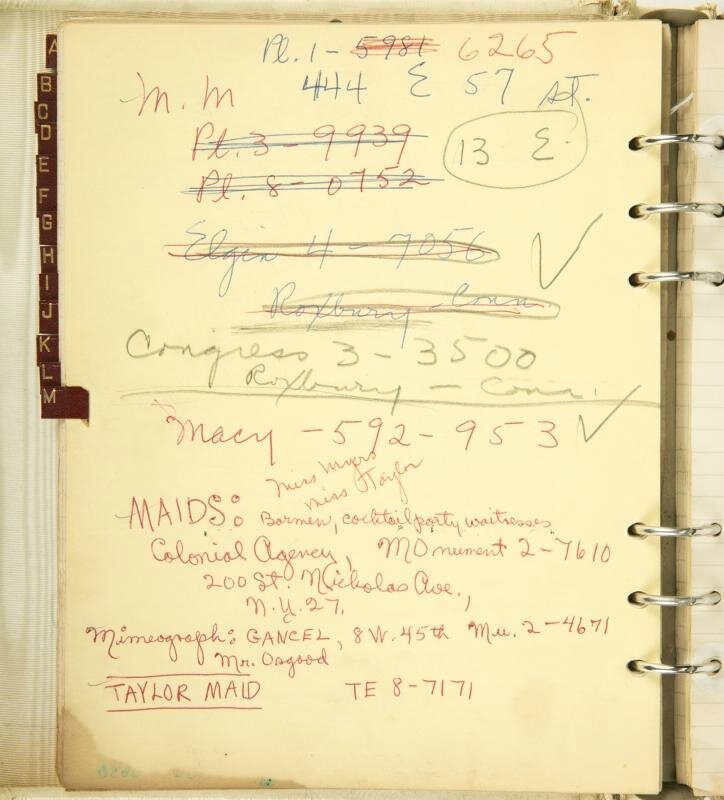 Pl. 1 - 5981 6265
M. M 444 E 57 st.
Pl. 3 - 9939
13 E.
Pl. 8 - 0752
Elgin 4 - 7056
Roxbury - Conn.
Congress 3 - 3500
Roxbury - Conn.
Macy - 592 - 953
Miss Myers
Miss Taylor
MAIDS: Barmen, cocktail party waitresses
Colonial Agency, MOnument 2-7610
200 St. Nickolas Ave.,
N.Y. 27.
Mimeograph: GANCEL, 8 W. 45th Mu. 2-4671
Mr. Osgood
TAYLOR MAID TE 8-7171
A
B
C
D
E
F
G
H
I
J
K
L
M